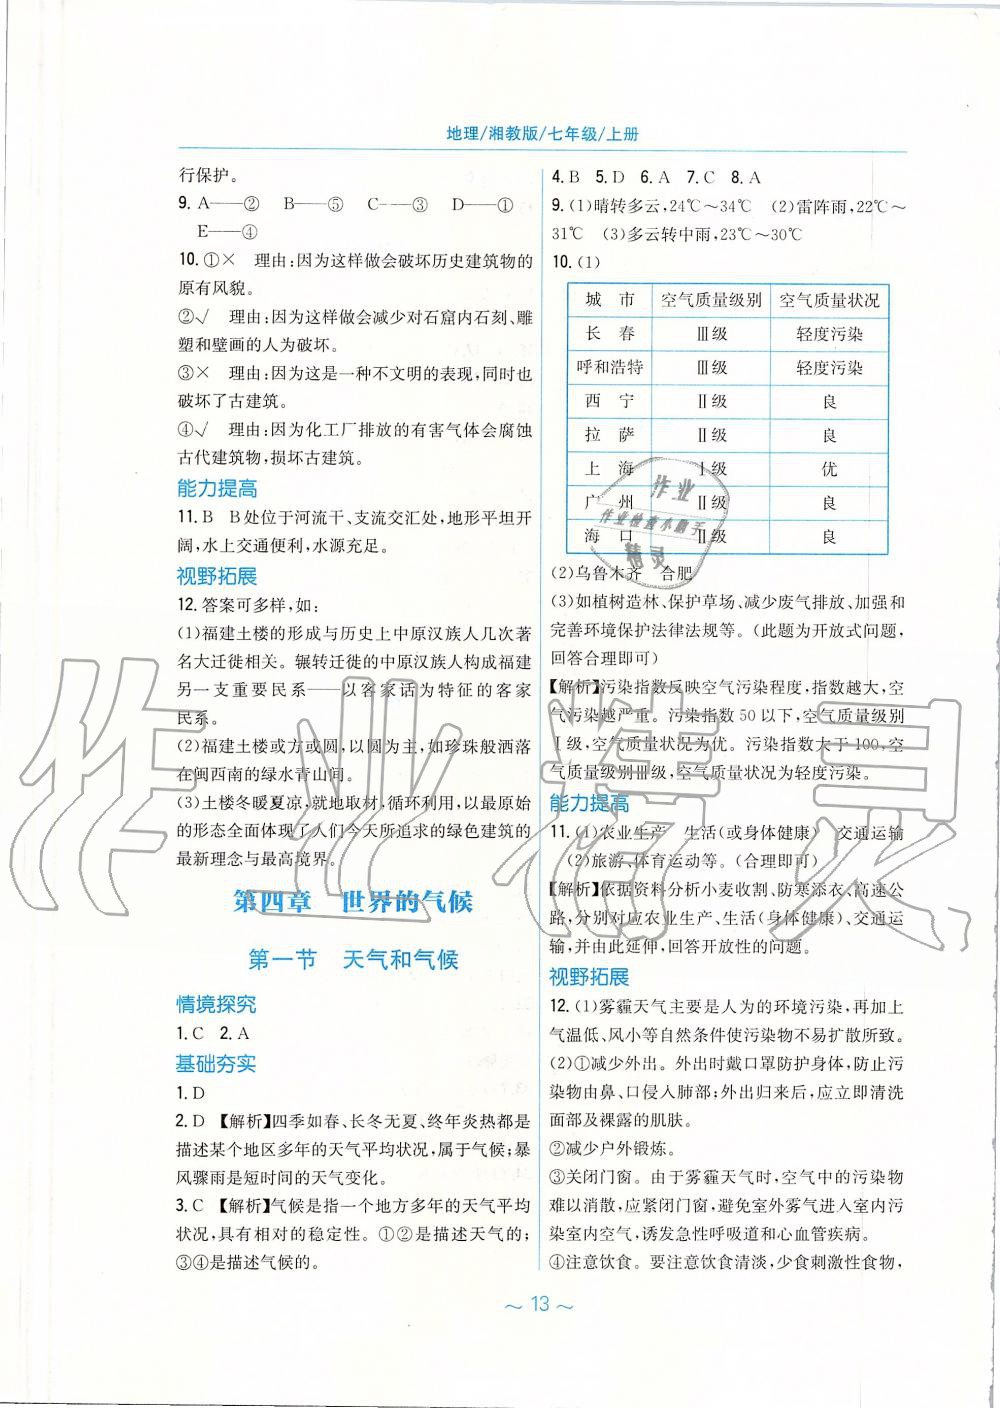 地理/湘教版/七年级/上册
行保护。
9. A——② B——⑤ C——③ D——①
E——④
10. ①× 理由:因为这样做会破坏历史建筑物的
原有风貌。
②√ 理由:因为这样做会减少对石窟内石刻、雕
塑和壁画的人为破坏。
③× 理由:因为这是一种不文明的表现,同时也
破坏了古建筑。
④√ 理由:因为化工厂排放的有害气体会腐蚀
古代建筑物,损坏古建筑。
能力提高
11. B B处位于河流干、支流交汇处,地形平坦开
阔,水上交通便利,水源充足。
视野拓展
12. 答案可多样,如:
(1)福建土楼的形成与历史上中原汉族人几次著
名大迁徙相关。辗转迁徙的中原汉族人构成福建
另一支重要民系——以客家话为特征的客家
民系。
(2)福建土楼或方或圆,以圆为主,如珍珠般洒落
在闽西南的绿水青山间。
(3)土楼冬暖夏凉,就地取材,循环利用,以最原始
的形态全面体现了人们今天所追求的绿色建筑的
最新理念与最高境界。
第四章 世界的气候
第一节 天气和气候
情境探究
1. C 2. A
基础夯实
1. D
2. D 【解析】四季如春、长冬无夏、终年炎热都是
描述某个地区多年的天气平均状况,属于气候;暴
风骤雨是短时间的天气变化。
3. C 【解析】气候是指一个地方多年的天气平均
状况,具有相对的稳定性。①②是描述天气的;
③④是描述气候的。
4. B 5. D 6. A 7. C 8. A
9. (1)晴转多云,24℃～34℃ (2)雷阵雨,22℃～
31℃ (3)多云转中雨,23℃～30℃
10. (1)
城 市 空气质量级别 空气质量状况
长 春 Ⅲ级 轻度污染
呼和浩特 Ⅲ级 轻度污染
西 宁 Ⅱ级 良
拉 萨 Ⅱ级 良
上 海 Ⅰ级 优
广 州 Ⅱ级 良
海 口 Ⅱ级 良
(2)乌鲁木齐 合肥
(3)如植树造林、保护草场、减少废气排放、加强和
完善环境保护法律法规等。(此题为开放式问题,
回答合理即可)
【解析】污染指数反映空气污染程度,指数越大,空
气污染越严重。污染指数50以下,空气质量级别
Ⅰ级,空气质量状况为优。污染指数大于100,空
气质量级别Ⅲ级,空气质量状况为轻度污染。
能力提高
11. (1)农业生产 生活(或身体健康) 交通运输
(2)旅游、体育运动等。(合理即可)
【解析】依据资料分析小麦收割、防寒添衣、高速公
路,分别对应农业生产、生活(身体健康)、交通运
输,并由此延伸,回答开放性的问题。
视野拓展
12. (1)雾霾天气主要是人为的环境污染,再加上
气温低、风小等自然条件使污染物不易扩散所致。
(2)①减少外出。外出时戴口罩防护身体,防止污
染物由鼻、口侵入肺部;外出归来后,应立即清洗
面部及裸露的肌肤。
②减少户外锻炼。
③关闭门窗。由于雾霾天气时,空气中的污染物
难以消散,应紧闭门窗,避免室外雾气进入室内污
染室内空气,诱发急性呼吸道和心血管疾病。
④注意饮食。要注意饮食清淡,少食刺激性食物,
～ 13 ～
作业
作业检查小助手
精灵
作业精灵